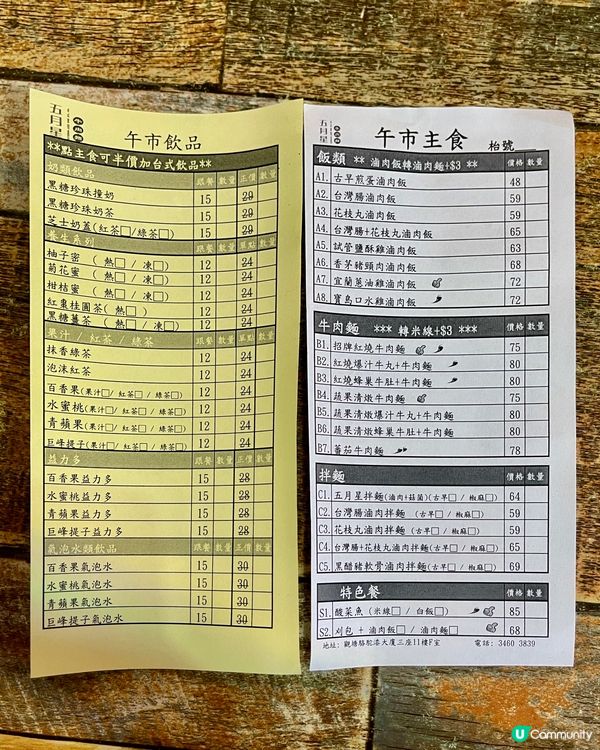 五月星
午市飲品
**點主食可半價加台式飲品**
奶類飲品 跟餐 數量 正價 數量
黑糖珍珠撞奶 15 29
黑糖珍珠奶茶 15 29
芝士奶蓋(紅茶□/綠茶□) 15 29
養生系列 跟餐 數量 單點 數量
柚子密 ( 熱□ / 凍□ ) 12 24
菊花蜜 ( 熱□ / 凍□ ) 12 24
柑桔蜜 ( 熱□ / 凍□ ) 12 24
紅棗桂圓茶( 熱□ ) 12 24
黑糖薑茶 ( 熱□ / 凍□ ) 12 24
果汁 / 紅茶 / 綠茶 跟餐 數量 單點 數量
抹香綠茶 12 24
泡沫紅茶 12 24
百香果(果汁□/ 紅茶□/ 綠茶□) 12 24
水蜜桃(果汁□/ 紅茶□/ 綠茶□) 12 24
青蘋果(果汁□/ 紅茶□/ 綠茶□) 12 24
巨峰提子(果汁□/ 紅茶□/ 綠茶□) 12 24
益力多 跟餐 數量 正價 數量
百香果益力多 15 28
水蜜桃益力多 15 28
青蘋果益力多 15 28
巨峰提子益力多 15 28
氣泡水類飲品 跟餐 數量 正價 數量
百香果氣泡水 15 30
水蜜桃氣泡水 15 30
青蘋果氣泡水 15 30
巨峰提子氣泡水 15 30
五月星
午市主食 枱號__
飯類 ** 滷肉飯轉滷肉麵+$3 ** 價格 數量
A1. 古早煎蛋滷肉飯 48
A2. 台灣腸滷肉飯 59
A3. 花枝丸滷肉飯 59
A4. 台灣腸+花枝丸滷肉飯 65
A5. 試管鹽酥雞滷肉飯 63
A6. 香茅豬頸肉滷肉飯 68
A7. 宜蘭蔥油雞滷肉飯 72
A8. 寶島口水雞滷肉飯 72
牛肉麵 *** 轉米線+$3 *** 價格 數量
B1. 招牌紅燒牛肉麵 75
B2. 紅燒爆汁牛丸+牛肉麵 80
B3. 紅燒蜂巢牛肚+牛肉麵 80
B4. 蔬果清燉牛肉麵 75
B5. 蔬果清燉爆汁牛丸+牛肉麵 80
B6. 蔬果清燉蜂巢牛肚+牛肉麵 80
B7. 蕃茄牛肉麵 78
拌麵 價格 數量
C1. 五月星拌麵(滷肉+菇菌)(古早□ / 椒麻□) 64
C2. 台灣腸滷肉拌麵 (古早□ / 椒麻□) 59
C3. 花枝丸滷肉拌麵 (古早□ / 椒麻□) 59
C4. 台灣腸+花枝丸滷肉拌麵(古早□ / 椒麻□) 65
C5. 黑醋豬軟骨滷肉拌麵(古早□ / 椒麻□) 69
特色餐 價格 數量
S1. 酸菜魚 (米線□ / 白飯□) 85
S2. 刈包 + 滷肉飯□ / 滷肉麵□ 68
地址: 觀塘駱駝漆大廈三座11樓F室 電話: 3460 3839
U Community